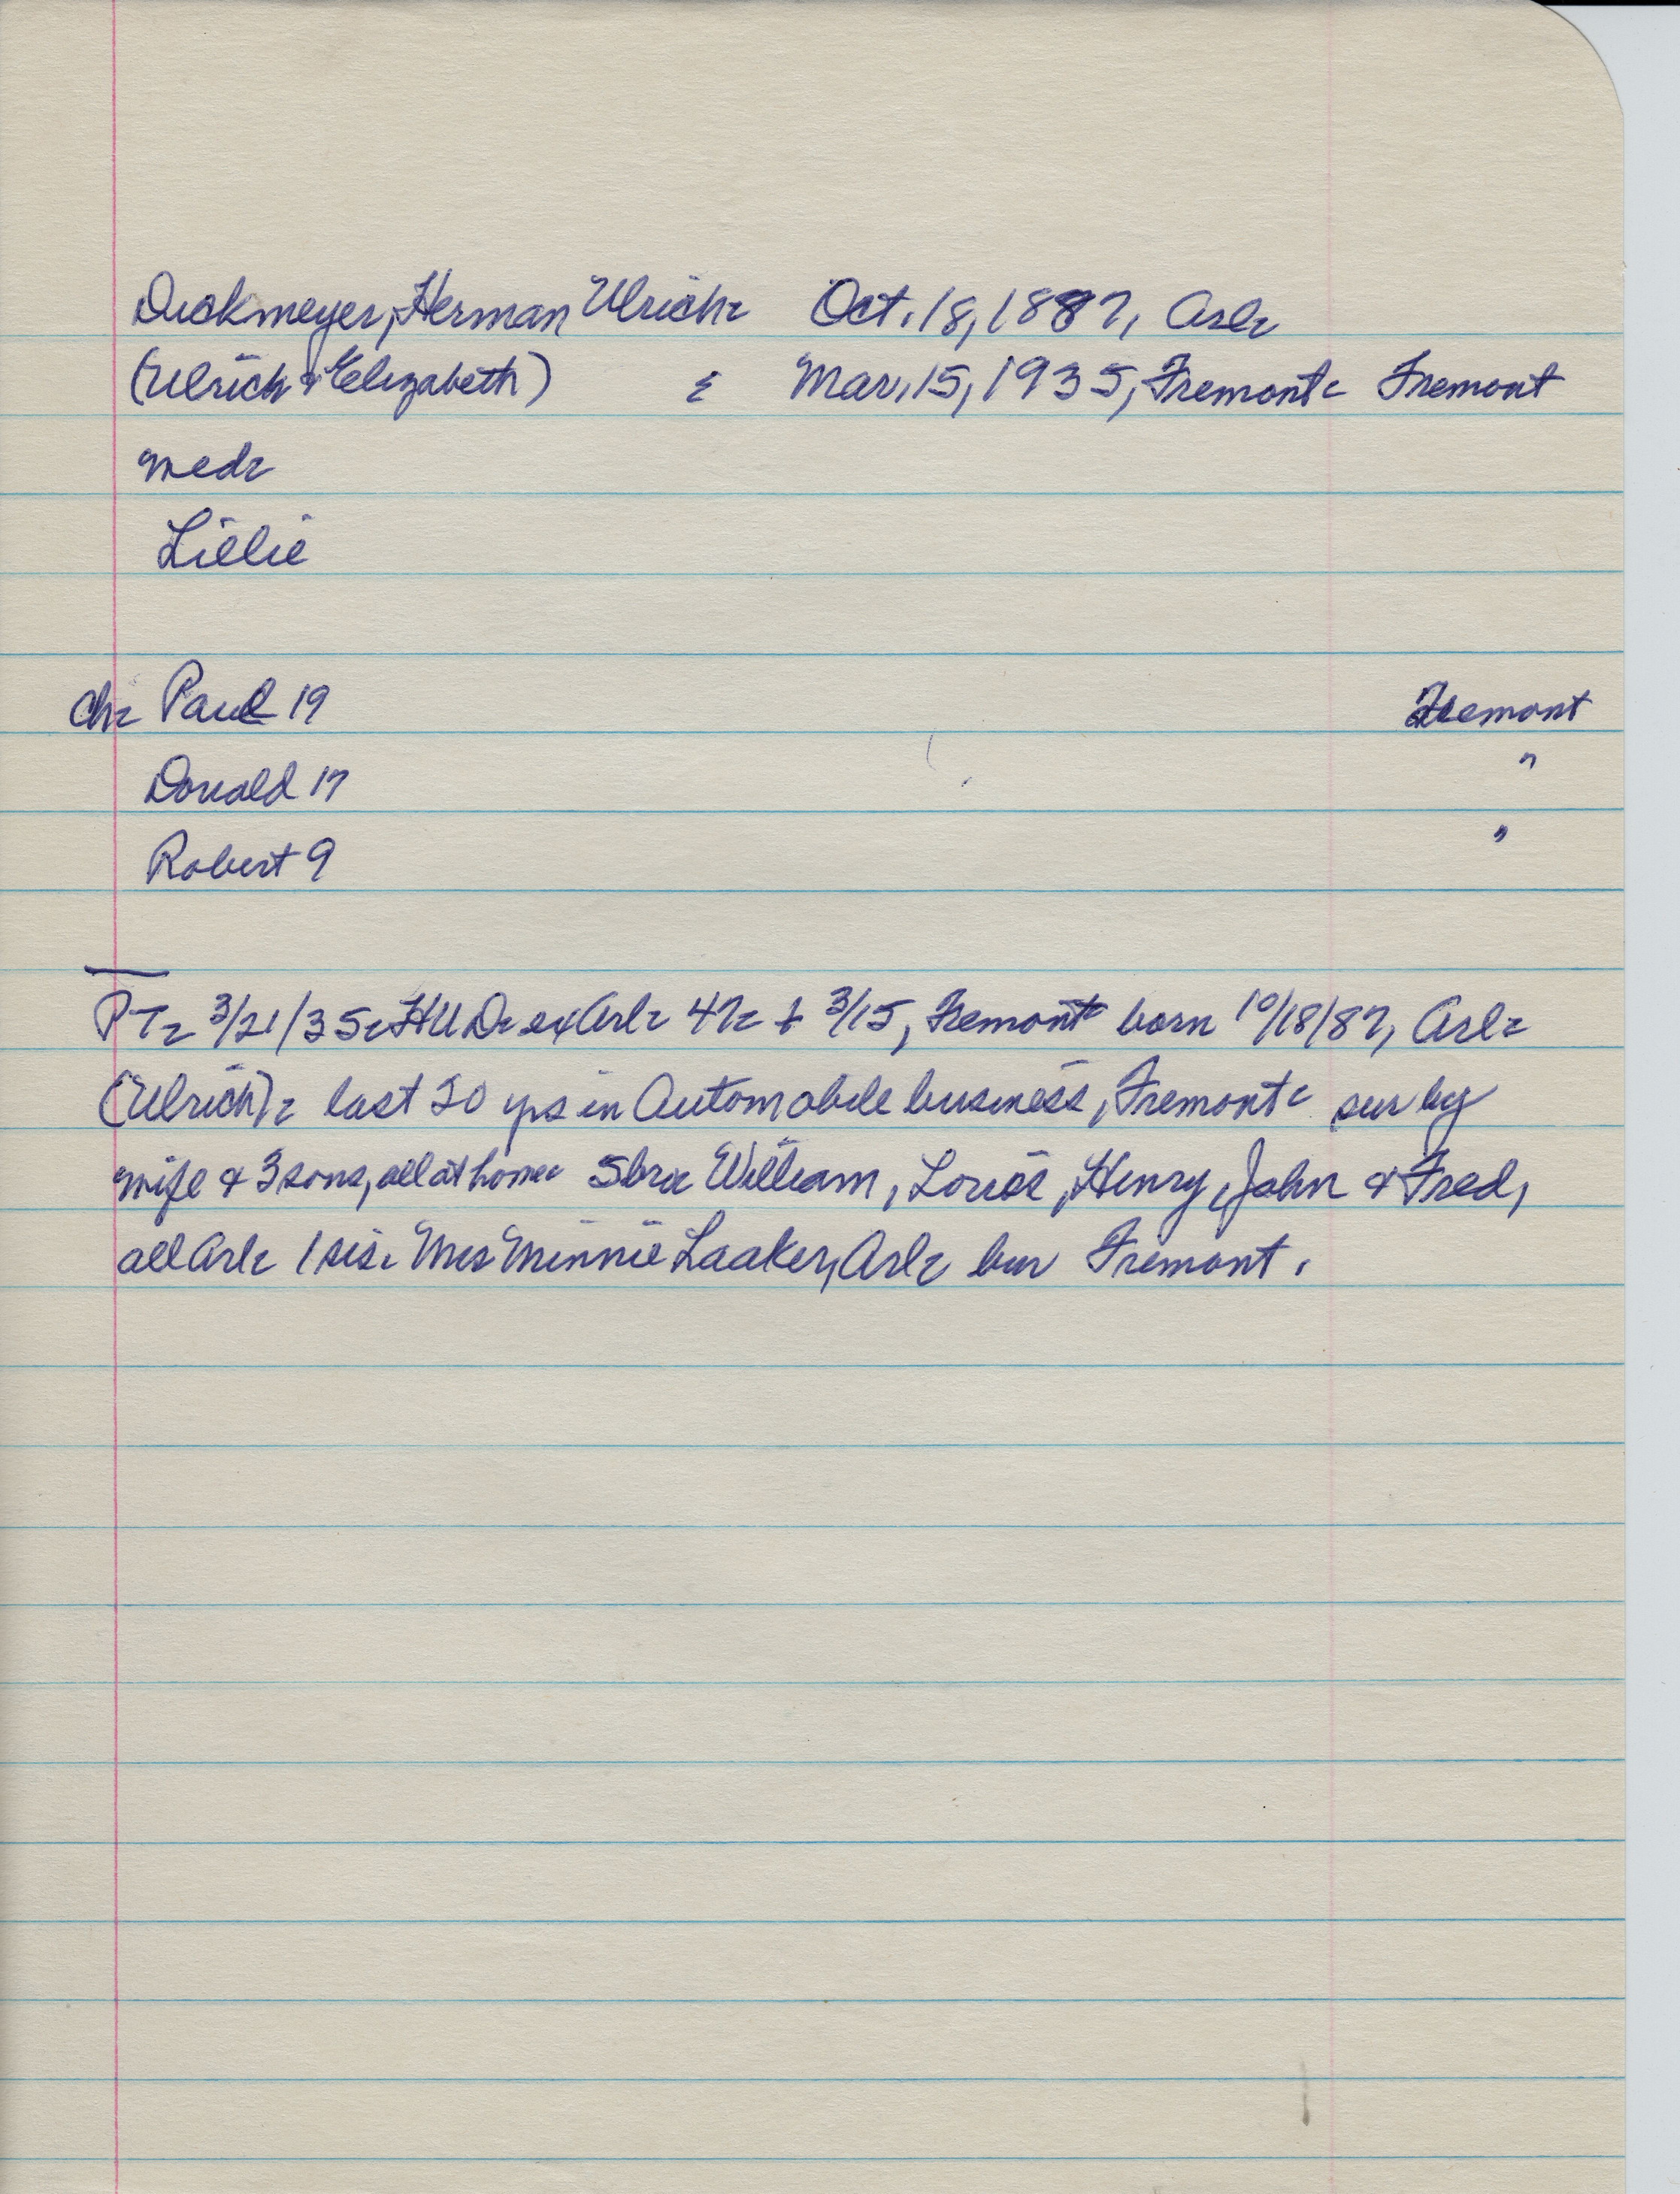 Dickmeyer, Herman Ulrich- Oct. 18, 1887, Arl-
(Ulrich & Elizabeth) & Mar. 15, 1935, Fremont- Fremont
med-
Lillie
ch- Paul 19 Fremont
Donald 17 "
Robert 9 "
PT- 3/21/35- HUD- ex Arl- 47- † 3/15, Fremont born 10/18/87, Arl-
(Ulrich)- last 20 yrs in Automobile business, Fremont- sur by
wife & 3 sons, all at home- 5 bro- William, Louis, Henry, John & Fred,
all Arl- 1 sis. Mrs Minnie Laaker, Arl- bur Fremont.